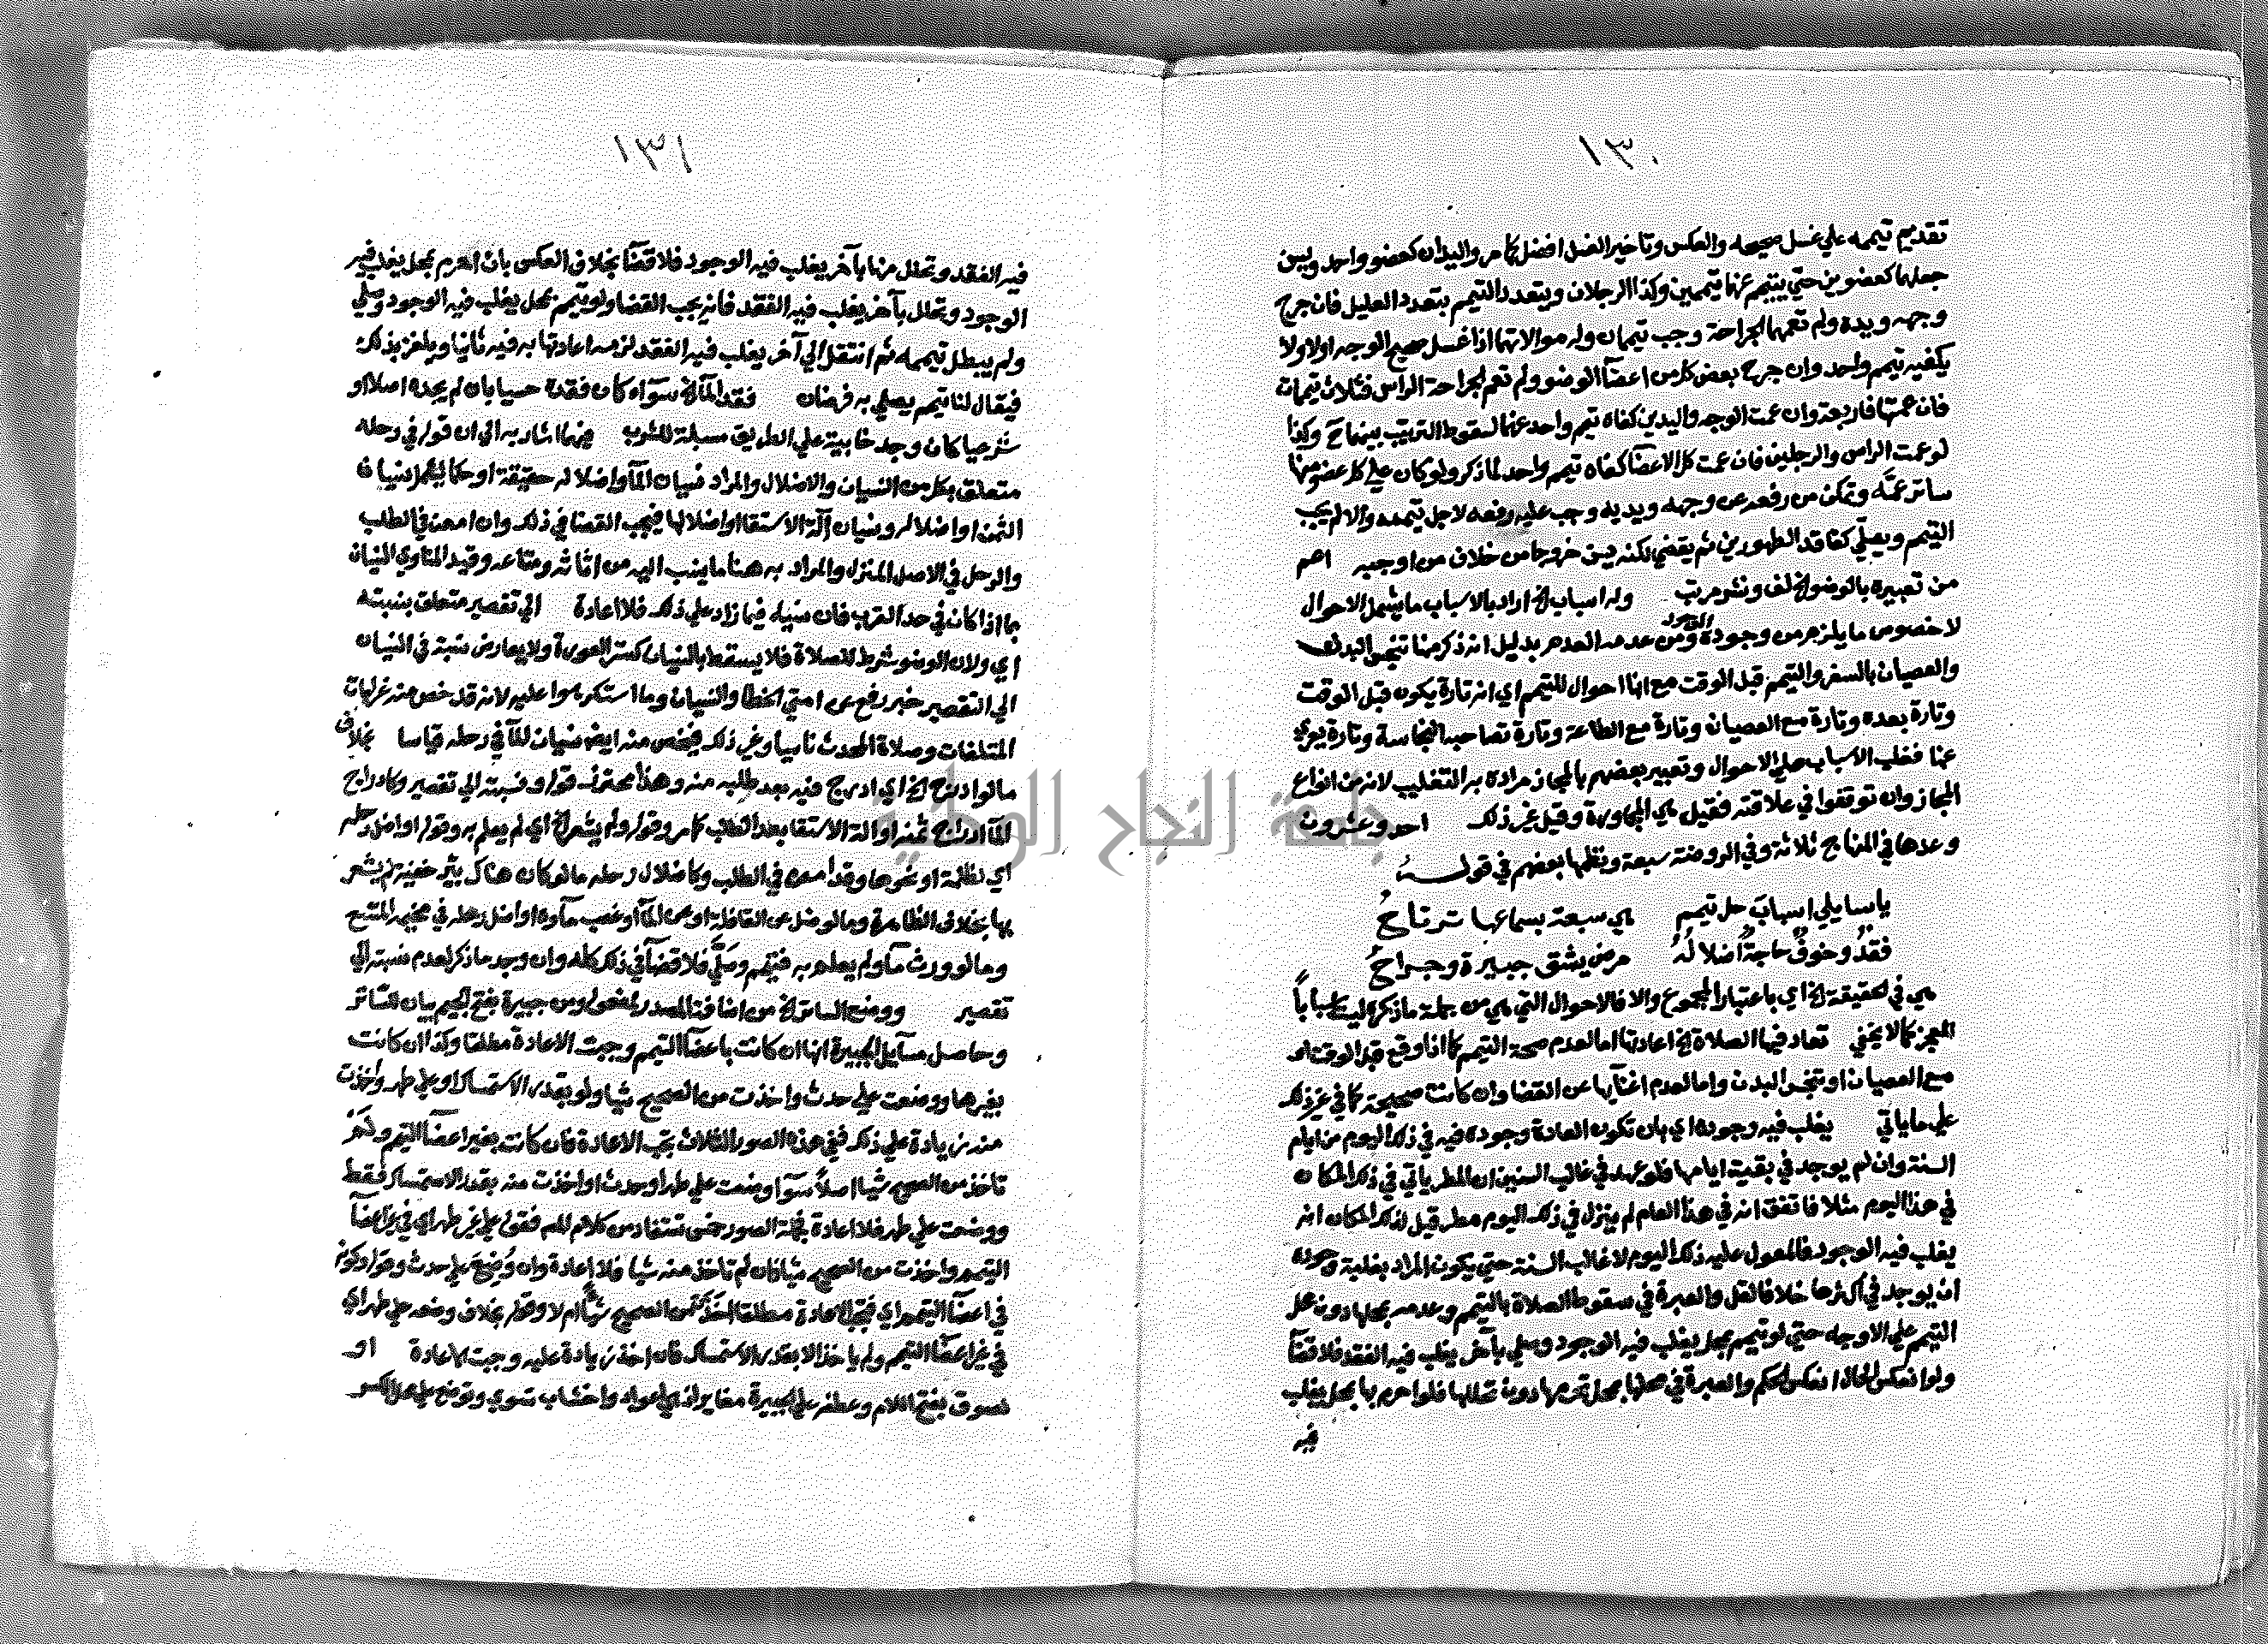 ١٣٠
تقديم تيممه علي غسل صحيحه والعكس وتاخير الغسل افضل كما مر واليدان كعضو واحد ويسن
جعلهما كعضوين حتي يتيمم عنهما تيممين وكذا الرجلان ويتعدد التيمم بتعدد العليل فان جرح
وجهه ويده ولم تعمهما الجراحة وجب تيممان وله موالاتهما اذا غسل صحيح الوجه اولا ولا
يكفيه تيمم واحد وان جرح بعض كل من اعضآ الوضو ولم تعم الجراحة الراس فثلاث تيممات
فان عمتها فاربعة وان عمت الوجه واليدين كفاه تيمم واحد عنهما لسقوط الترتيب بينهما ح وكذا
لو عمت الراس والرجلين فان عمت كل الاعضا كفاه تيمم واحد لما ذكر ولو كان علي كل عضو منها
ساتر عمّه وتمكن من رفعه عن وجهه ويديه وجب عليه رفعه لاجل تيممه والا لم يجب
التيمم ويصلي كفاقد الطهورين ثم يقضي لكنه يسن خروجا من خلاف من اوجبه اعم
من تعبيره بالوضو الخ لف ونشر مرتب وله اسباب الخ اراد بالاسباب ما يشمل الاحوال
لا خصوص ما يلزم من وجوده الوجود ومن عدمه العدم بدليل انه ذكر منها تنجس البدن
والعصيان بالسفر والتيمم قبل الوقت مع انها احوال للتيمم اي انه تارة يكون قبل الوقت
وتارة بعده وتارة مع العصيان وتارة مع الطاعة وتارة تصاحبه النجاسة وتارة يعري
عنها فغلب الاسباب علي الاحوال وتعبير بعضهم بالمجاز مراده به التغليب لانه من انواع
المجاز وان توقفوا في علاقته فقيل هي المجاورة وقيل غير ذلك احد وعشرون
وعدها في المنهاج ثلاثة وفي الروضة سبعة ونظمها بعضهم في قوله
يا سايلي اسباب حل تيمم هي سبعة بسماعها ترتاح
فقد وخوف حاجة اضلاله مرض يشق جبيرة وجراح
هي في الحقيقة الخ اي باعتبار المجموع والا فالاحوال التي هي من جملة ما ذكر ليست اسباباً
للعجز كما لا يخفي تعاد فيها الصلاة الخ اعادتها اما لعدم صحة التيمم كما اذا وقع قبل الوقت او
مع العصيان او تنجس البدن واما لعدم اغنآيها عن القضا وان كانت صحيحة كما في غير ذلك
علي ما ياتي يغلب فيه وجوده اي بان تكون العادة وجوده فيه في ذلك اليوم من ايام
السنة وان لم يوجد في بقية ايامها فلو عهد في غالب السنين ان المطر ياتي في ذلك المكان
في هذا اليوم مثلا فاتفق انه في هذا العام لم ينزل في ذلك اليوم مطر قيل لذلك المكان انه
يغلب فيه الوجود فالمعول عليه ذلك اليوم لا غالب السنة حتي يكون المراد بغلبة وجوده
ان يوجد في اكثرها خلافا لقل والعبرة في سقوط الصلاة بالتيمم وعدمه بمحلها دون محل
التيمم علي الاوجه حتي لو تيمم بمحل يغلب فيه الوجود وصلي بآخر يغلب فيه الفقد فلا قضآ
ولو انعكس الحال انعكس الحكم والعبرة في محلها بمحل تحرمها دون تحللها فلو احرم بها بمحل يغلب
فيه
١٣١
فيه الفقد وتحلل منها بآخر يغلب فيه الوجود فلا قضآ بخلاف العكس بان احرم بمحل يغلب فيه
الوجود وتحلل بآخر يغلب فيه الفقد فانه يجب القضا ولو تيمم بمحل يغلب فيه الوجود وصلي
ولم يبطل تيممه ثم انتقل الي آخر يغلب فيه الفقد لزمه اعادتها به فيه ثانيا ويلغز بذلك
فيقال لنا تيمم يصلي به فرضان فقد المآ الخ سوآء كان فقده حسيا بان لم يجده اصلا او
شرعيا كان وجد خابية علي الطريق مسبلة للشرب فيهما اشار به الي ان قوله في رحله
متعلق بكل من النسيان والاضلال والمراد نسيان المآ واضلاله حقيقة او حكما ليشمل نسيان
الثمن او اضلاله ونسيان آلة الاستقا او اضلالها فيجب القضا في ذلك وان امعن في الطلب
والرحل في الاصل المنزل والمراد به هنا ما ينسب اليه من اثاثه ومتاعه وقيد المناوي النسيان
بما اذا كان في حد القرب فان نسيه فيما زاد علي ذلك فلا اعادة الي تقصير متعلق بنسبته
اي ولان الوضو شرط للصلاة فلا يسقط بالنسيان كستر العورة ولا يعارض نسبته في النسيان
الي التقصير خبر رفع عن امتي الخطا والنسيان وما استكرهوا عليه لانه قد خص منه غرامات
المتلفات وصلاة المحدث ناسيا وغير ذلك فيخص منه ايضا نسيان المآ في رحله قياسا بخلاف
ما لو ادرج الخ اي ادرج فيه بعد طلبه منه وهذا محترز قوله ونسبته الي تقصير وكادراج
المآ ادراج ثمنه او آلة الاستقا بعد الطلب كما مر وقوله ولم يشعر الخ اي لم يعلم به وقوله او اضل رحله
اي لظلمة او نحوها وقد امعن في الطلب وكاضلال رحله ما لو كان هناك بئر خفية لم يشعر
بها بخلاف الظاهرة وما لو ضل عن القافلة او عن المآ او غصب مآوه او اضل رحله في مخيم المتسع
وما لو ورث مآ ولم يعلم به فتيمم وصلّي فلا قضآ في ذلك كله وان وجد ما ذكر لعدم نسبته الي
تقصير ووضع الساتر الخ من اضافة المصدر لمفعوله ومن جبيرة بفتح الجيم بيان للساتر
وحاصل مسآيل الجبيرة انها ان كانت باعضآ التيمم وجبت الاعادة مطلقا وكذا ان كانت
بغيرها ووضعت علي حدث واخذت من الصحيح شيا ولو بقدر الاستمساك او علي طهر واخذت
منه زيادة علي ذلك ففي هذه الصور الثلاث تجب الاعادة فان كانت بغير اعضآ التيمم ولم
تاخذ من الصحيح شيا اصلاً سوآ وضعت علي طهر او حدث او اخذت منه بقدر الاستمساك فقط
ووضعت علي طهر فلا اعادة فجملة الصور خمس تستفاد من كلامه فقوله علي غير طهر اي في غير اعضآ
التيمم واخذت من الصحيح شيا فان لم تاخذ منه شيا فلا اعادة وان وُضِعَ علي حدث وقوله او كونه
في اعضآ التيمم اي فتجب الاعادة مطلقا اخذت من الصحيح شيا ام لا وقوله بخلاف وضعه علي طهر اي
في غير اعضآ التيمم ولم ياخذ الا بقدر الاستمساك فان اخذ زيادة عليه وجبت الاعادة او
لصوق بفتح اللام وعطفه علي الجبيرة مغاير اذ هي اعواد واخشاب تسوي وتوضع علي محل الكسر
جامعة النجاح الوطنية